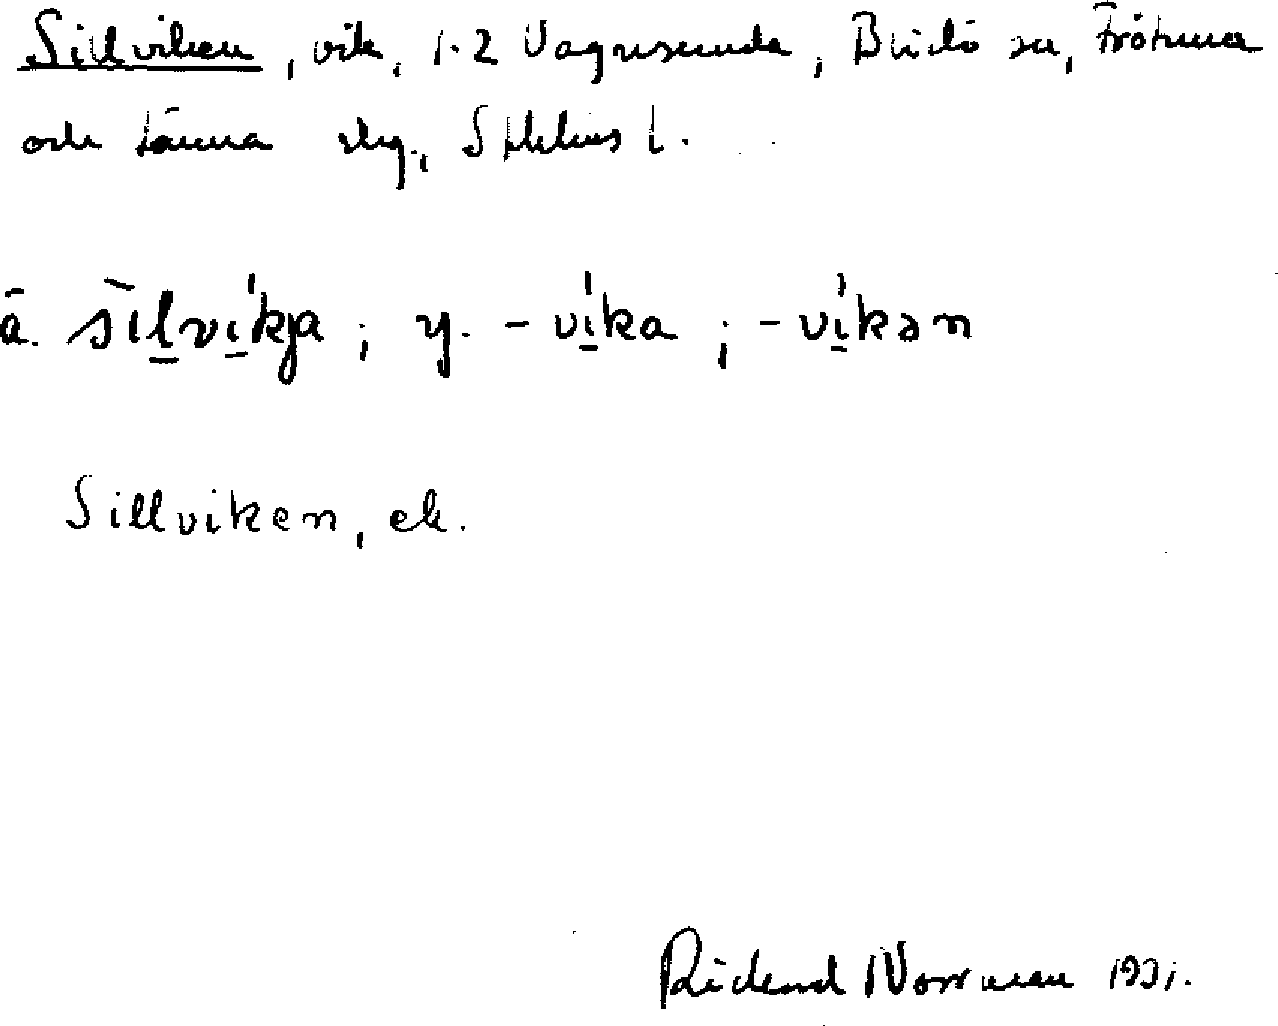 Sillviken, vik, 1-2 Vagnsunda, Blidö sn, Frötuna
och Länna skg., Sthlms l.
ä. sìlví́kja; y. -víka; -víkən
Sillviken, ek.
Rickard Norrman 1931.